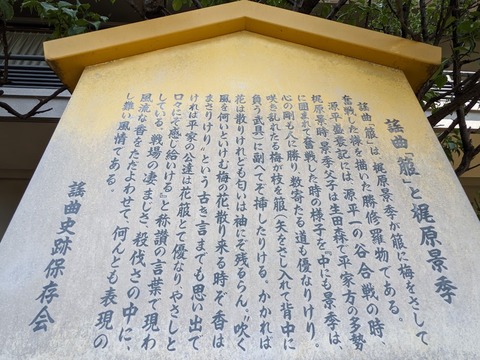 謡曲「箙」と梶原景季
謡曲「箙」は、梶原景季が箙に梅をさして
奮戦した様を描いた勝修羅物である。
源平盛衰記には、源平一の谷合戦の時、
梶原景時・景季父子は生田森で平家方の多勢
に囲まれて奮戦した時の様子を、「中にも景季は、
心の剛も人に勝り、数寄たる道も優なりけり。
咲き乱れたる梅が枝を箙(矢をさし入れて背中に
負う武具)に副へてぞ挿したりける。かかれば
花は散りけれども匂いは袖にぞ残るらん。〝吹く
風を何いといけむ梅の花散り来る時ぞ香は
まさりけり〟という古き言までも思い出で
ければ平家の公達は花箙とて優なりやさしと
口々にぞ感じ給いける』と称讃の言葉で現わ
している。戦場の凄まじさ、殺伐さの中に、
風流な香をただよわせて、何んとも表現の
し難い風情である。
謡曲史跡保存会